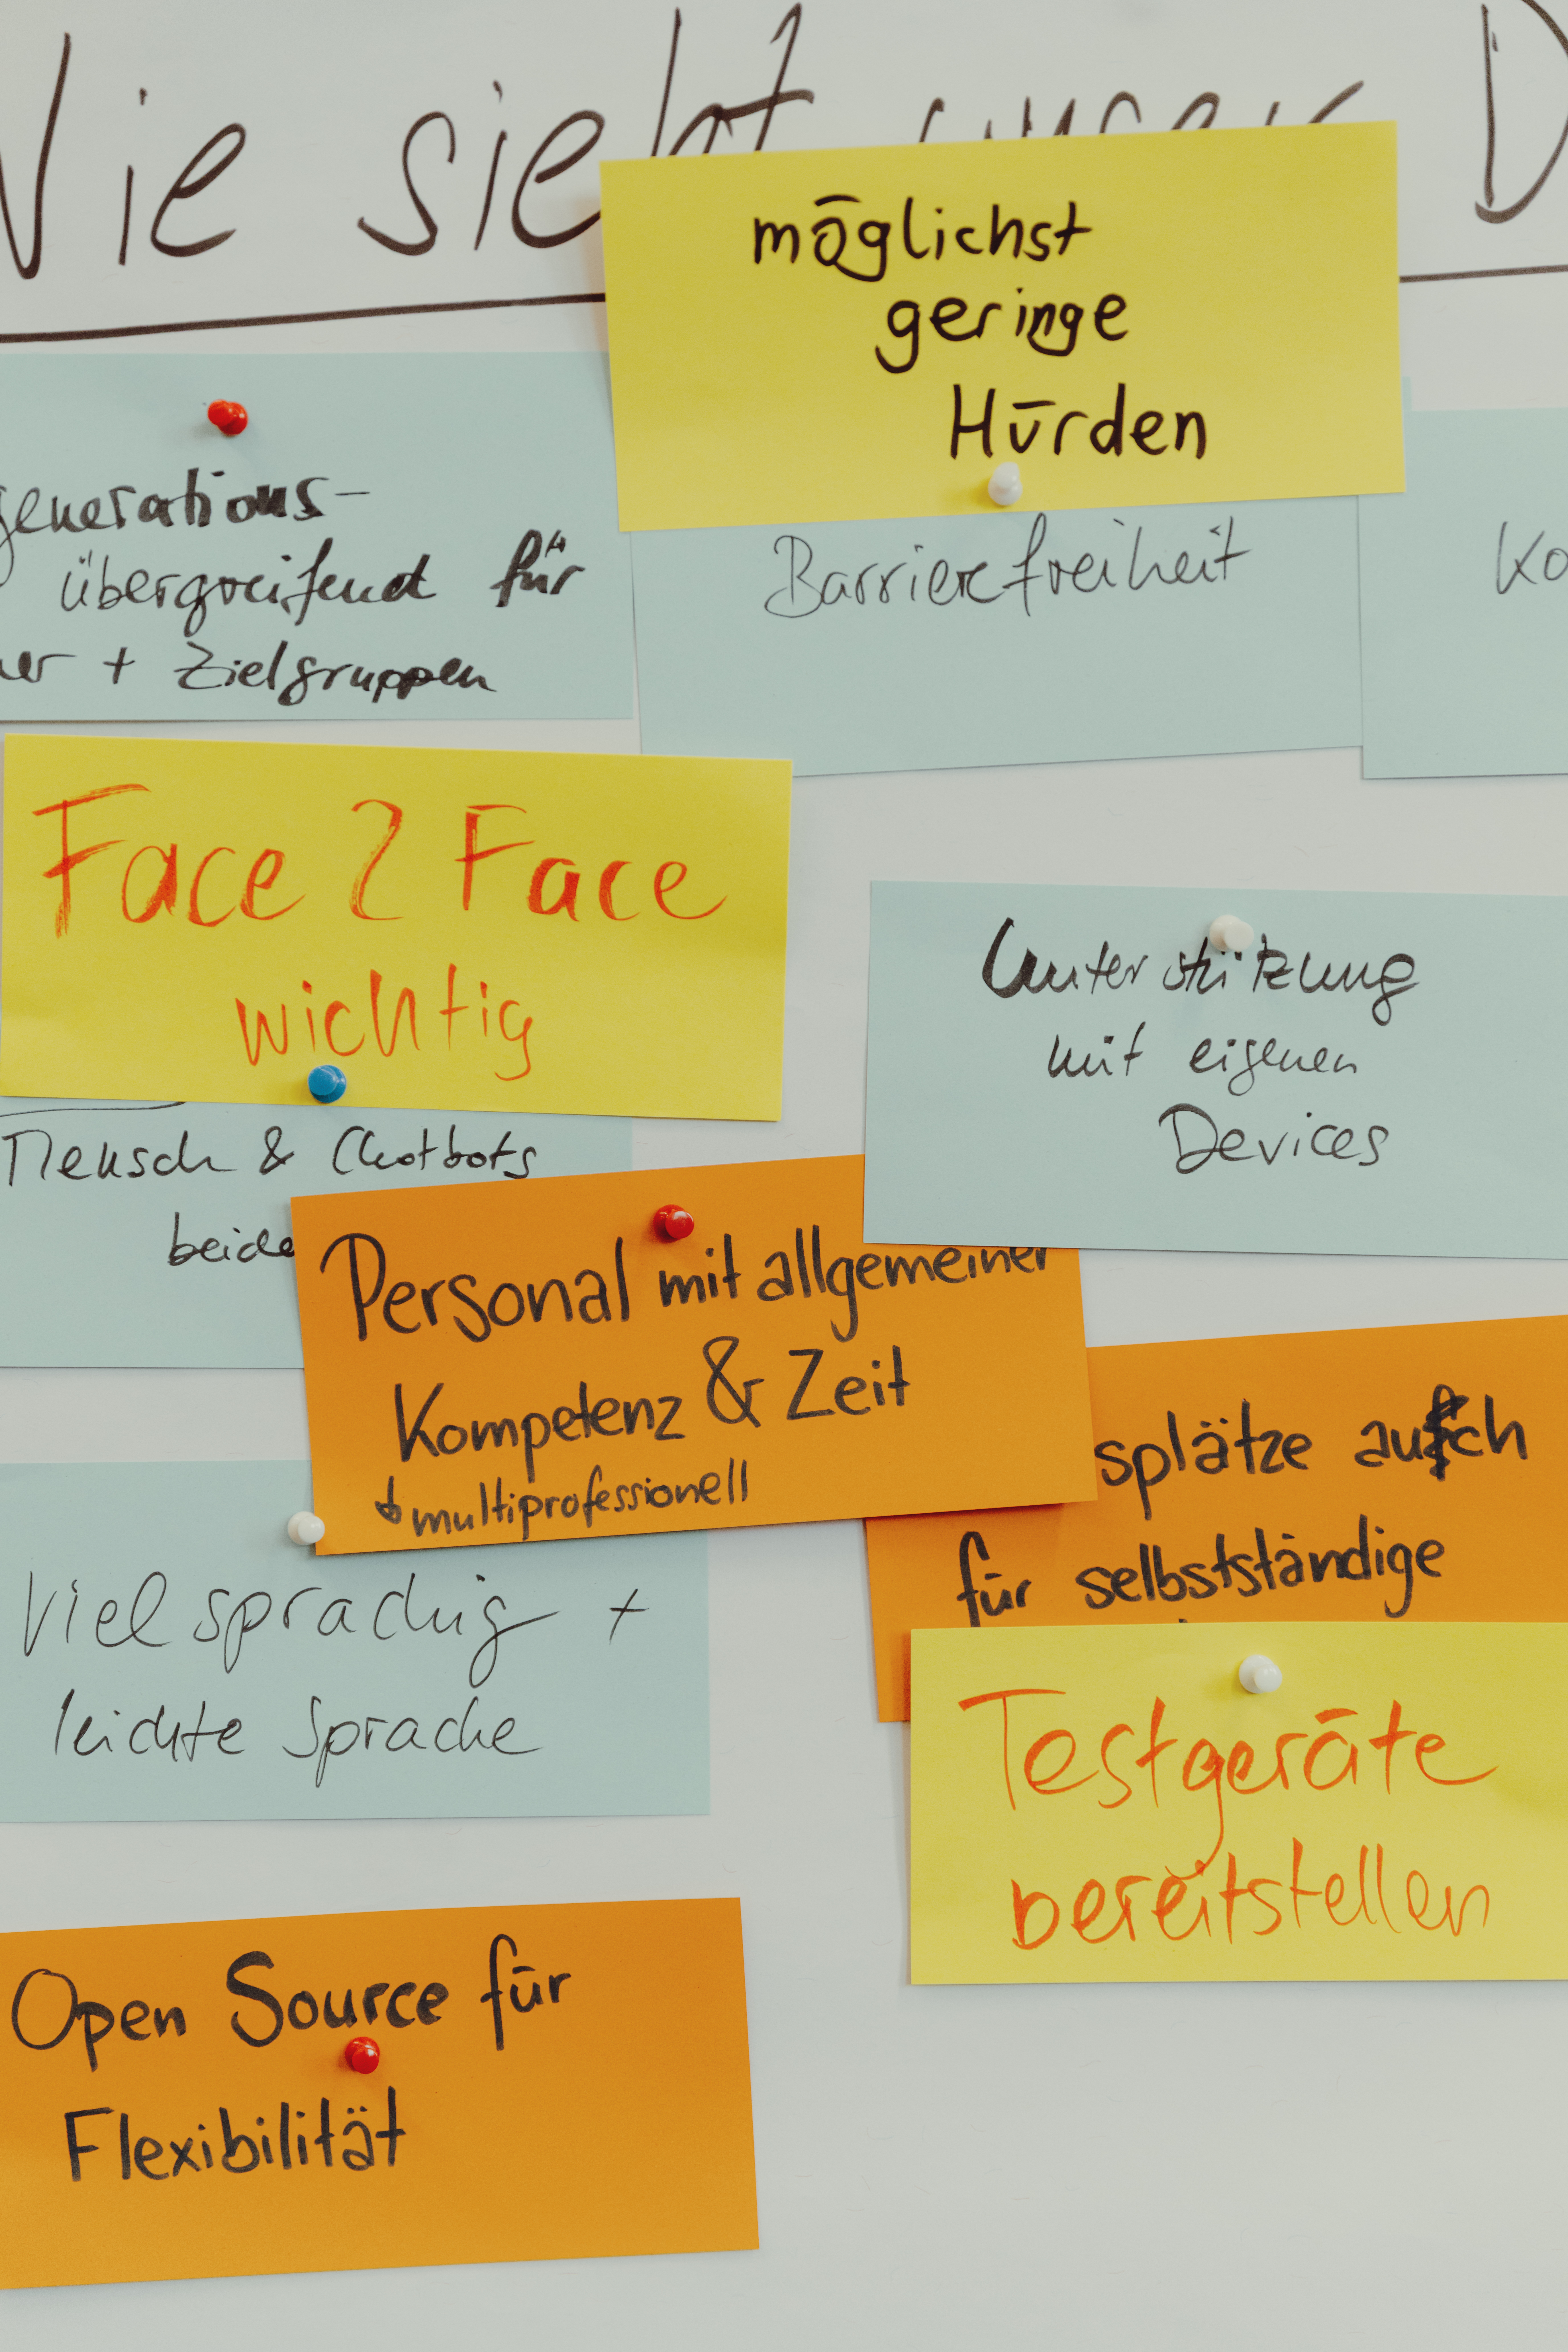 Wie sieht unser D
möglichst
geringe
Hürden
generations-
übergreifend für
er + Zielgruppen
Barrierefreiheit
Ko
Face 2 Face
wichtig
Unterstützung
mit eigenen
Devices
Mensch & Chatbots
beide
Personal mit allgemeiner
Kompetenz & Zeit
multiprofessionell
splätze auch
für selbstständige
Vielsprachig +
leichte Sprache
Testgeräte
bereitstellen
Open Source für
Flexibilität